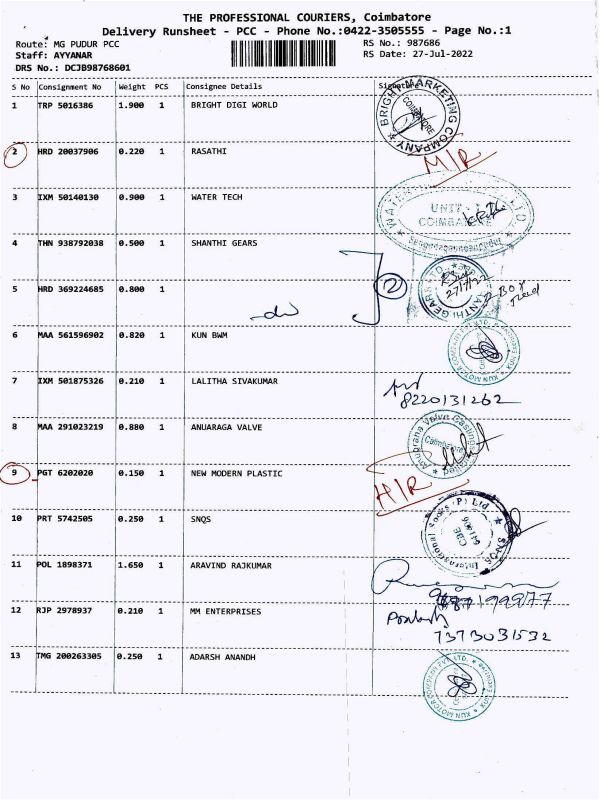 THE PROFESSIONAL COURIERS, Coimbatore
Delivery Runsheet - PCC - Phone No.:0422-3505555 - Page No.:1
Route: MG PUDUR PCC RS No.: 987686
Staff: AYYANAR RS Date: 27-Jul-2022
DRS No.: DCJB98768601
S No Consignment No Weight PCS Consignee Details Signature
1 TRP 5016386 1.900 1 BRIGHT DIGI WORLD
BRIGHT MARKETING COMPANY COIMBATORE
2 HRD 20037906 0.220 1 RASATHI
3 IXM 50140130 0.900 1 WATER TECH
UNIT
4 THN 938792038 0.500 1 SHANTHI GEARS
27/7/22
SHANTHI GEARS LTD.
5 HRD 369224685 0.800 1
2
6 MAA 561596902 0.820 1 KUN BWM
KUN MOTOR COMPANY PVT. LTD.
7 IXM 501875326 0.210 1 LALITHA SIVAKUMAR
8220131262
8 MAA 291023219 0.880 1 ANUARAGA VALVE
Coimbatore
9 PGT 6202020 0.150 1 NEW MODERN PLASTIC
10 PRT 5742505 0.250 1 SNQS
SNQS International Socks (P) Ltd
CBE
11 POL 1898371 1.650 1 ARAVIND RAJKUMAR
12 RJP 2978937 0.210 1 MM ENTERPRISES
7373031532
13 TMG 200263305 0.250 1 ADARSH ANANDH
KUN MOTOR COMPANY PVT. LTD.